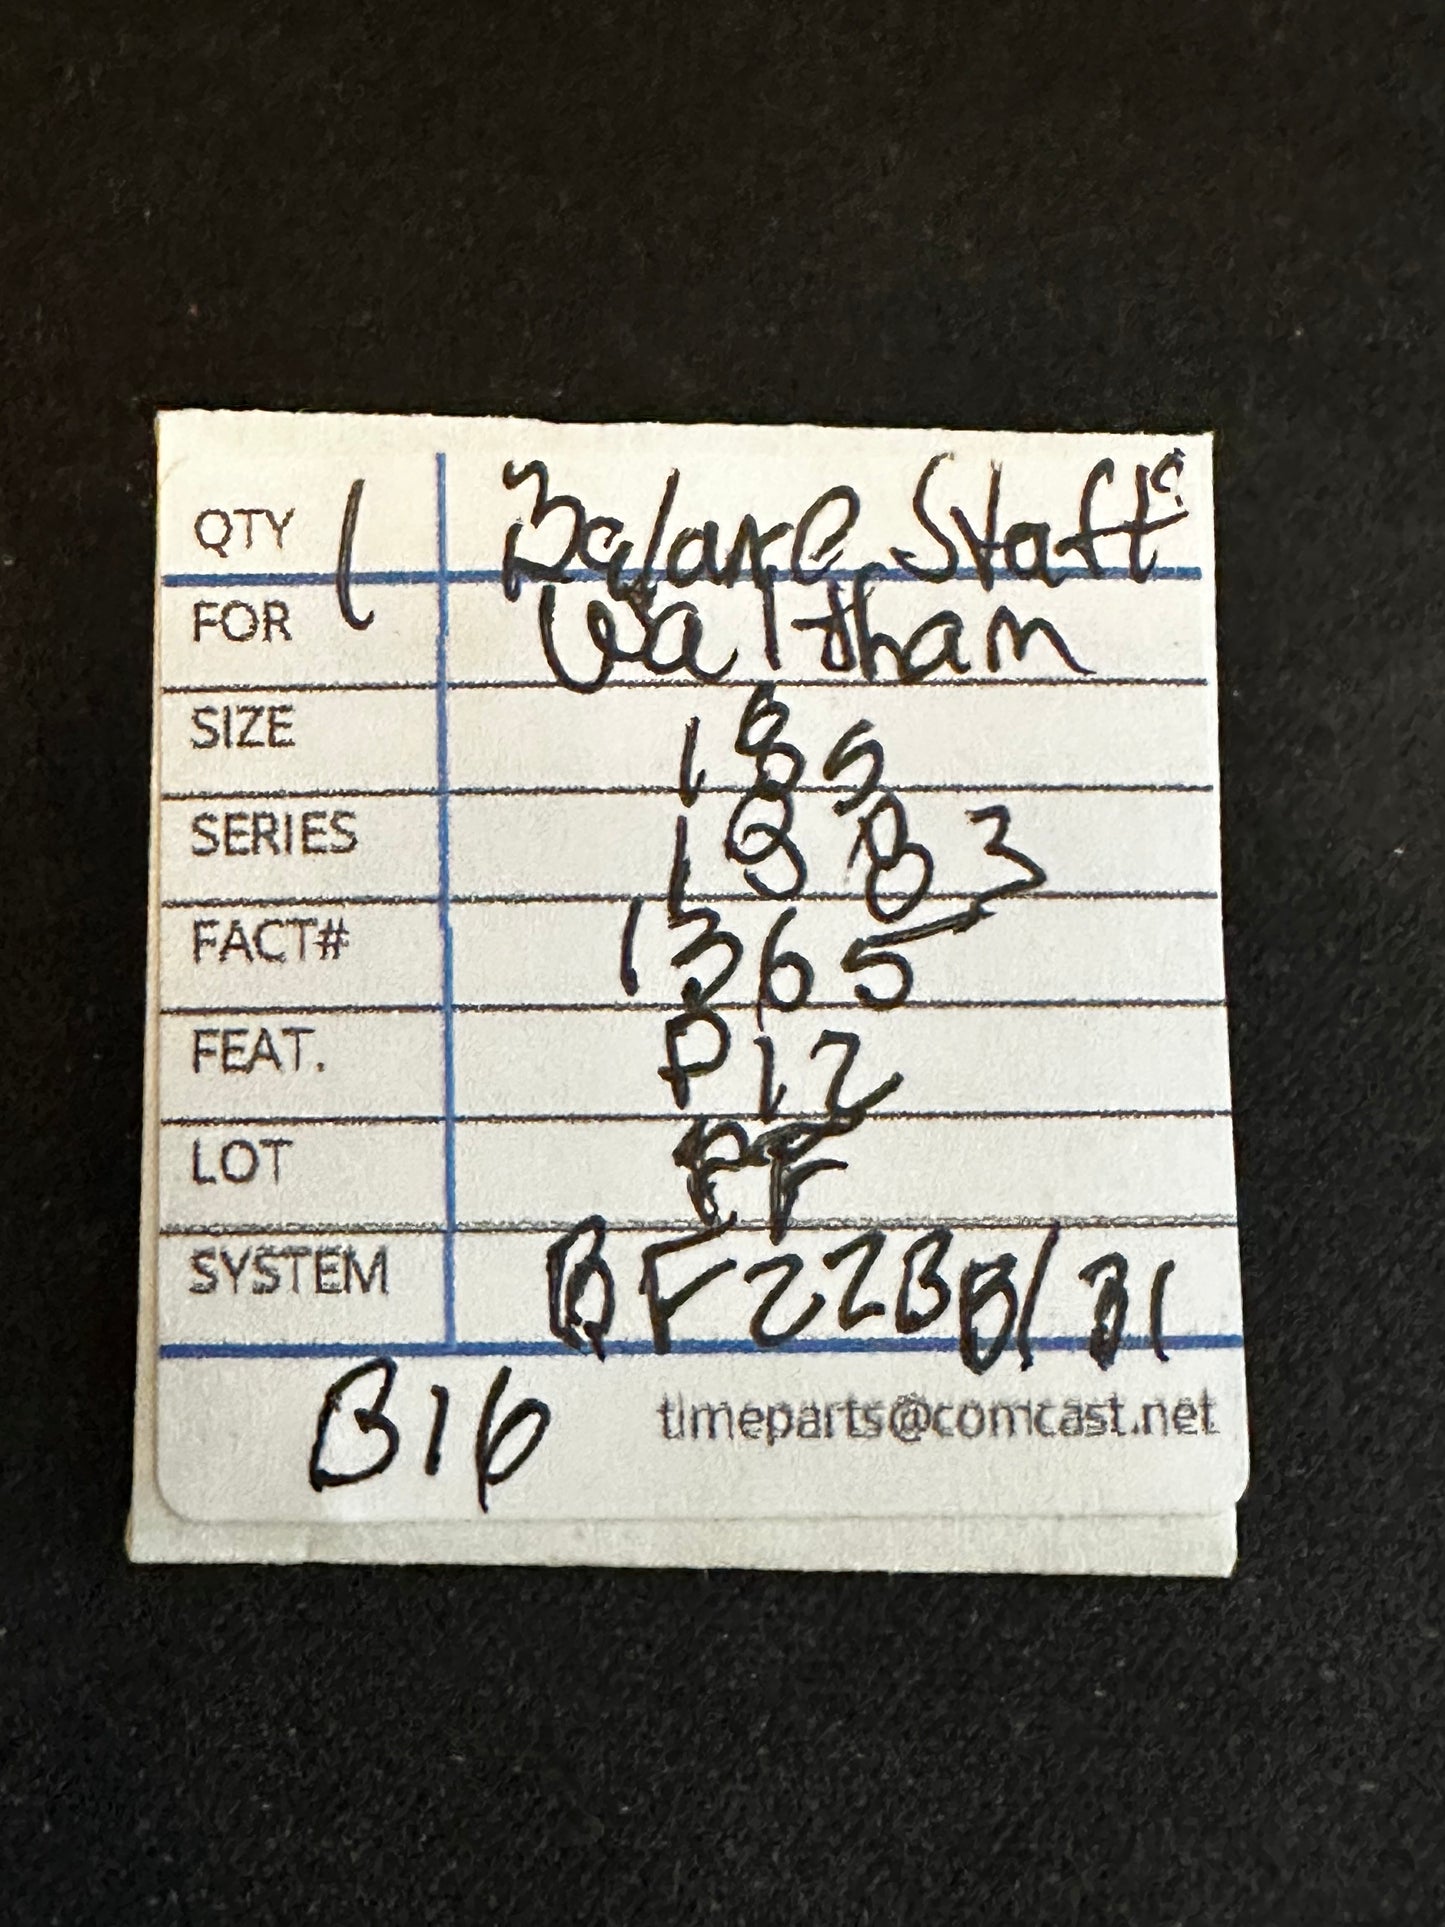 QTY 1 Balance Staffs
FOR Waltham
SIZE 18s
SERIES 1883
FACT# 1365
FEAT. P12
LOT
SYSTEM BF22BB/B1
B16 timeparts@comcast.net